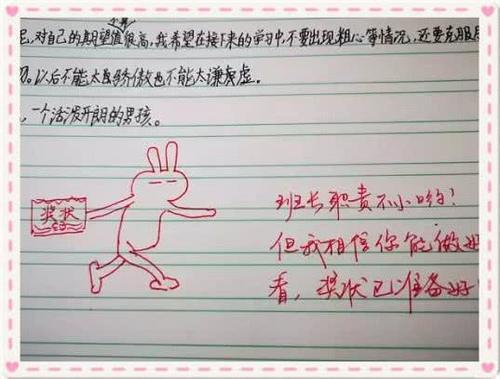 对自己的期望值很高,我希望在接下来的学习中,不要出现粗心等情况,还要克服
。以后不能太骄傲也不能太谦虚。
一个活泼开朗的男孩。
奖状
班长职责不小哟!
但我相信你能做好
看,奖状已准备好